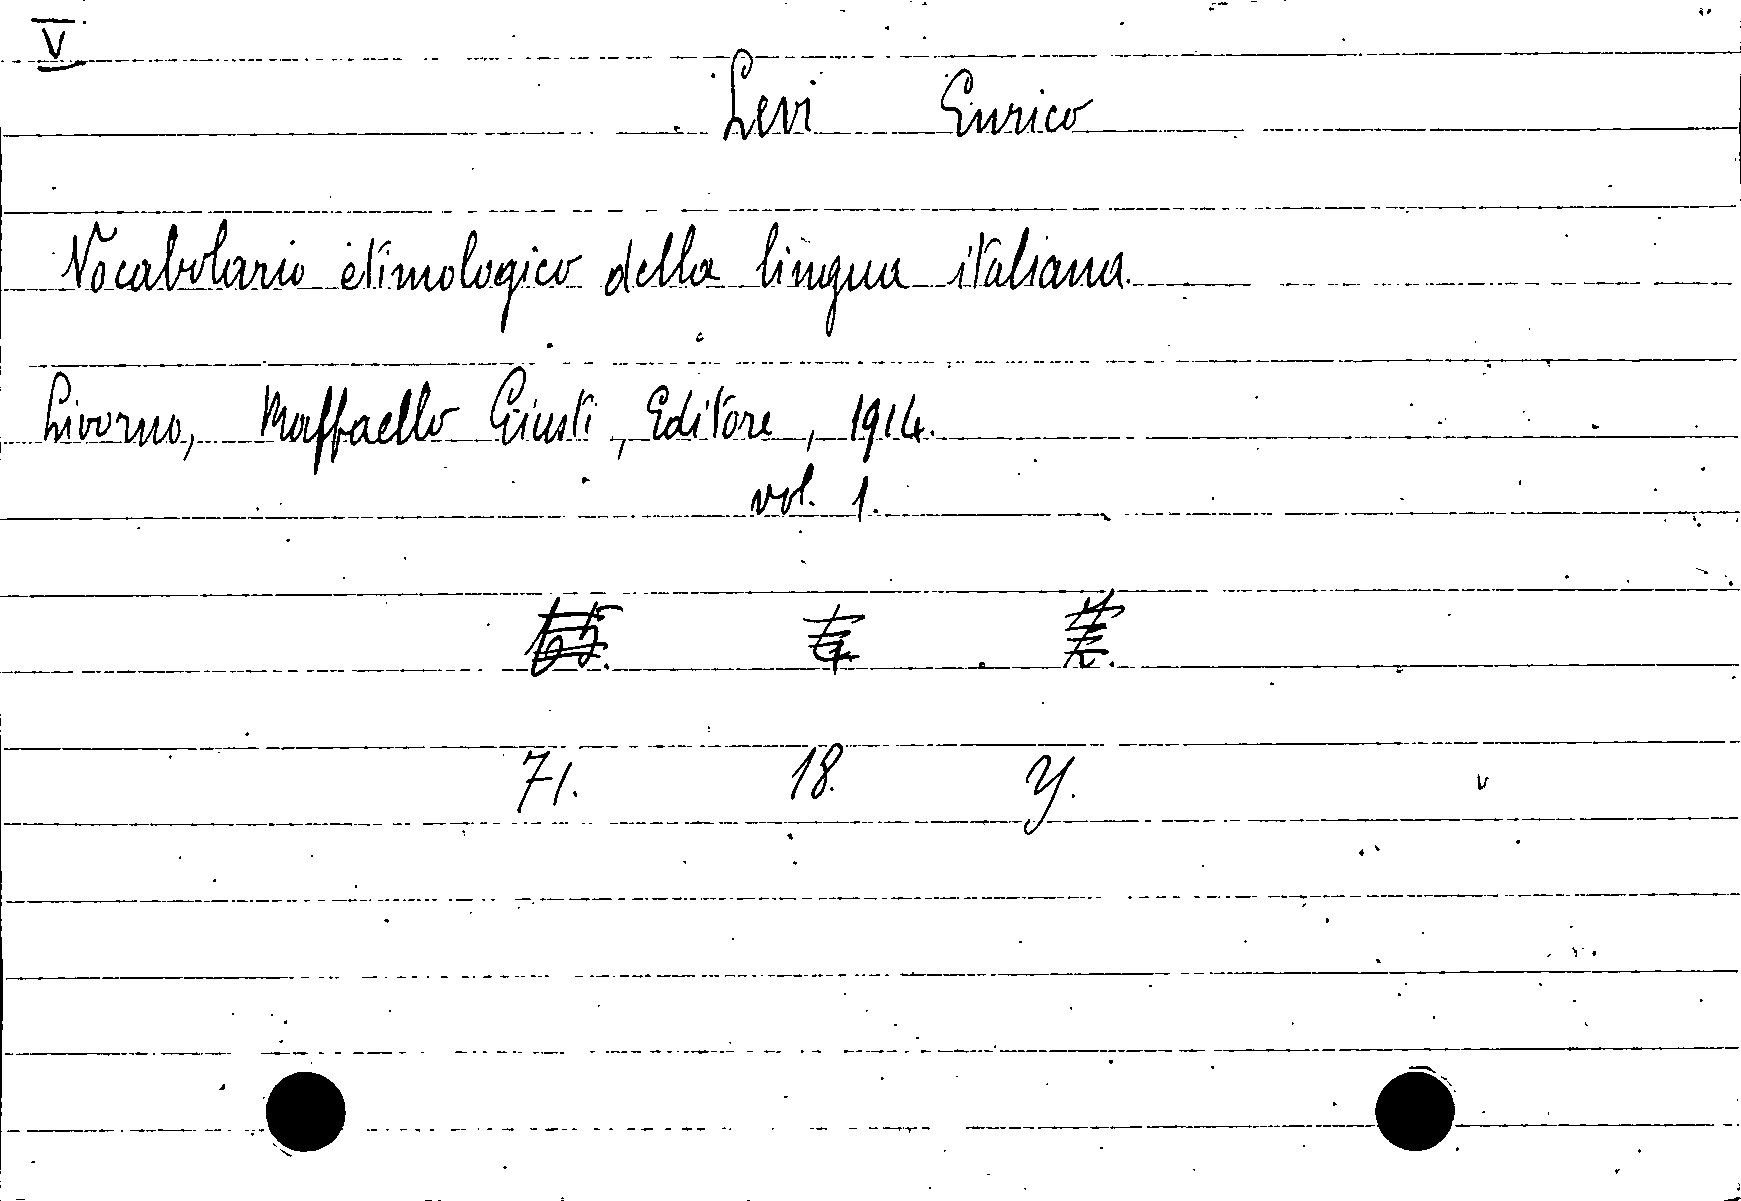 V
Levi Enrico
Vocabolario etimologico della lingua italiana.
Livorno, Raffaello Giusti, Editore, 1914.
vol. 1.
71. 18. Y.